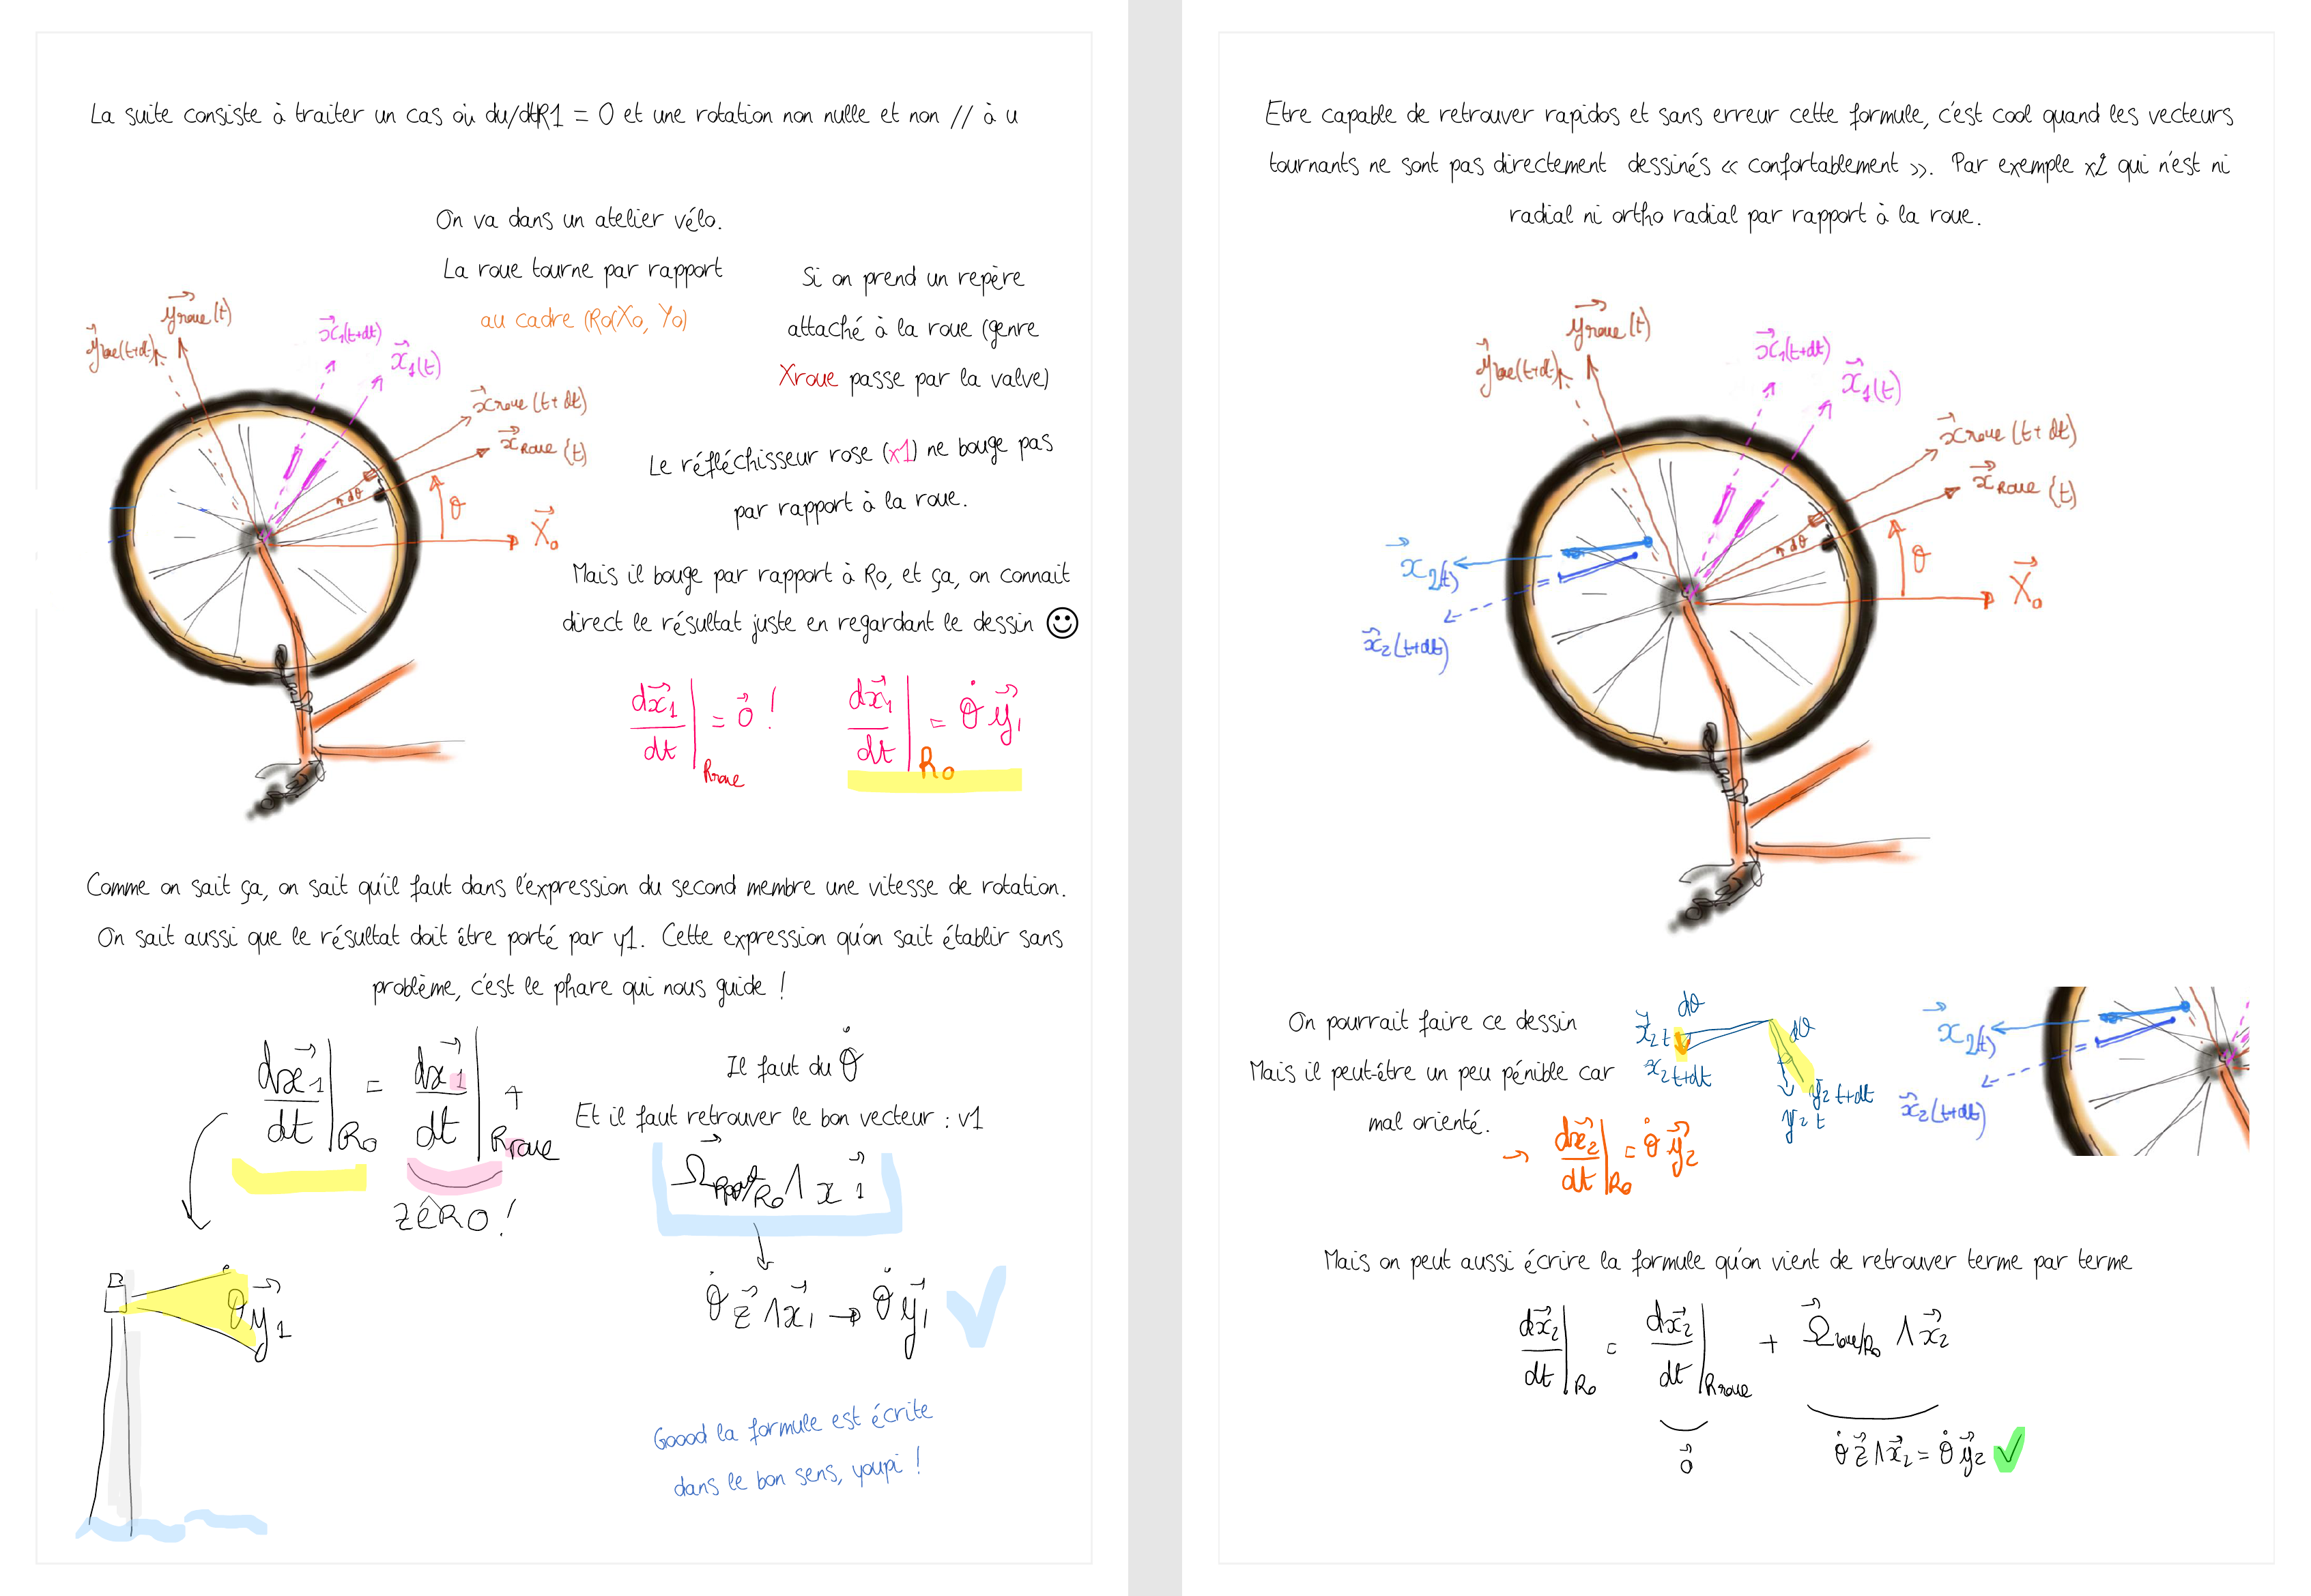 La suite consiste à traiter un cas où du/dtR1 = 0 et une rotation non nulle et non // à u
On va dans un atelier vélo.
La roue tourne par rapport
au cadre (Ro(Xo, Yo)
Si on prend un repère
attaché à la roue (genre
Xroue passe par la valve)
Le réfléchisseur rose (x1) ne bouge pas
par rapport à la roue.
Mais il bouge par rapport à Ro, et ça, on connait
direct le résultat juste en regardant le dessin ☺
y⃗roue (t)
y⃗roue(t+dt)
x⃗1(t+dt)
x⃗1(t)
x⃗roue (t+dt)
x⃗Roue (t)
dθ
θ
X⃗o
dx⃗1/dt|Rroue = 0⃗ !
dx⃗1/dt|Ro = θ̇ y⃗1
Comme on sait ça, on sait qu'il faut dans l'expression du second membre une vitesse de rotation.
On sait aussi que le résultat doit être porté par y1. Cette expression qu'on sait établir sans
problème, c'est le phare qui nous guide !
dx⃗1/dt|Ro = dx⃗1/dt|Rroue +
zéRO !
Il faut du θ̇
Et il faut retrouver le bon vecteur : v1
Ω⃗Rroue/Ro Λ x⃗1
θ̇ z⃗ Λ x⃗1 → θ̇ y⃗1
θ̇ y⃗1
Goood la formule est écrite
dans le bon sens, youpi !
Etre capable de retrouver rapidos et sans erreur cette formule, c'est cool quand les vecteurs
tournants ne sont pas directement dessinés « confortablement ». Par exemple x2 qui n'est ni
radial ni ortho radial par rapport à la roue.
y⃗roue (t)
y⃗roue(t+dt)
x⃗1(t+dt)
x⃗1(t)
x⃗roue (t+dt)
x⃗Roue (t)
dθ
θ
X⃗o
x⃗2(t)
x⃗2(t+dt)
On pourrait faire ce dessin
Mais il peut-être un peu pénible car
mal orienté.
dθ
x⃗2 t
x⃗2 t+dt
dθ
y⃗2 t+dt
y⃗2 t
→ dx⃗2/dt|Ro = θ̇ y⃗2
x⃗2(t)
x⃗2(t+dt)
Mais on peut aussi écrire la formule qu'on vient de retrouver terme par terme
dx⃗2/dt|Ro = dx⃗2/dt|Rroue + Ω⃗roue/Ro Λ x⃗2
0⃗
θ̇ z⃗ Λ x⃗2 = θ̇ y⃗2